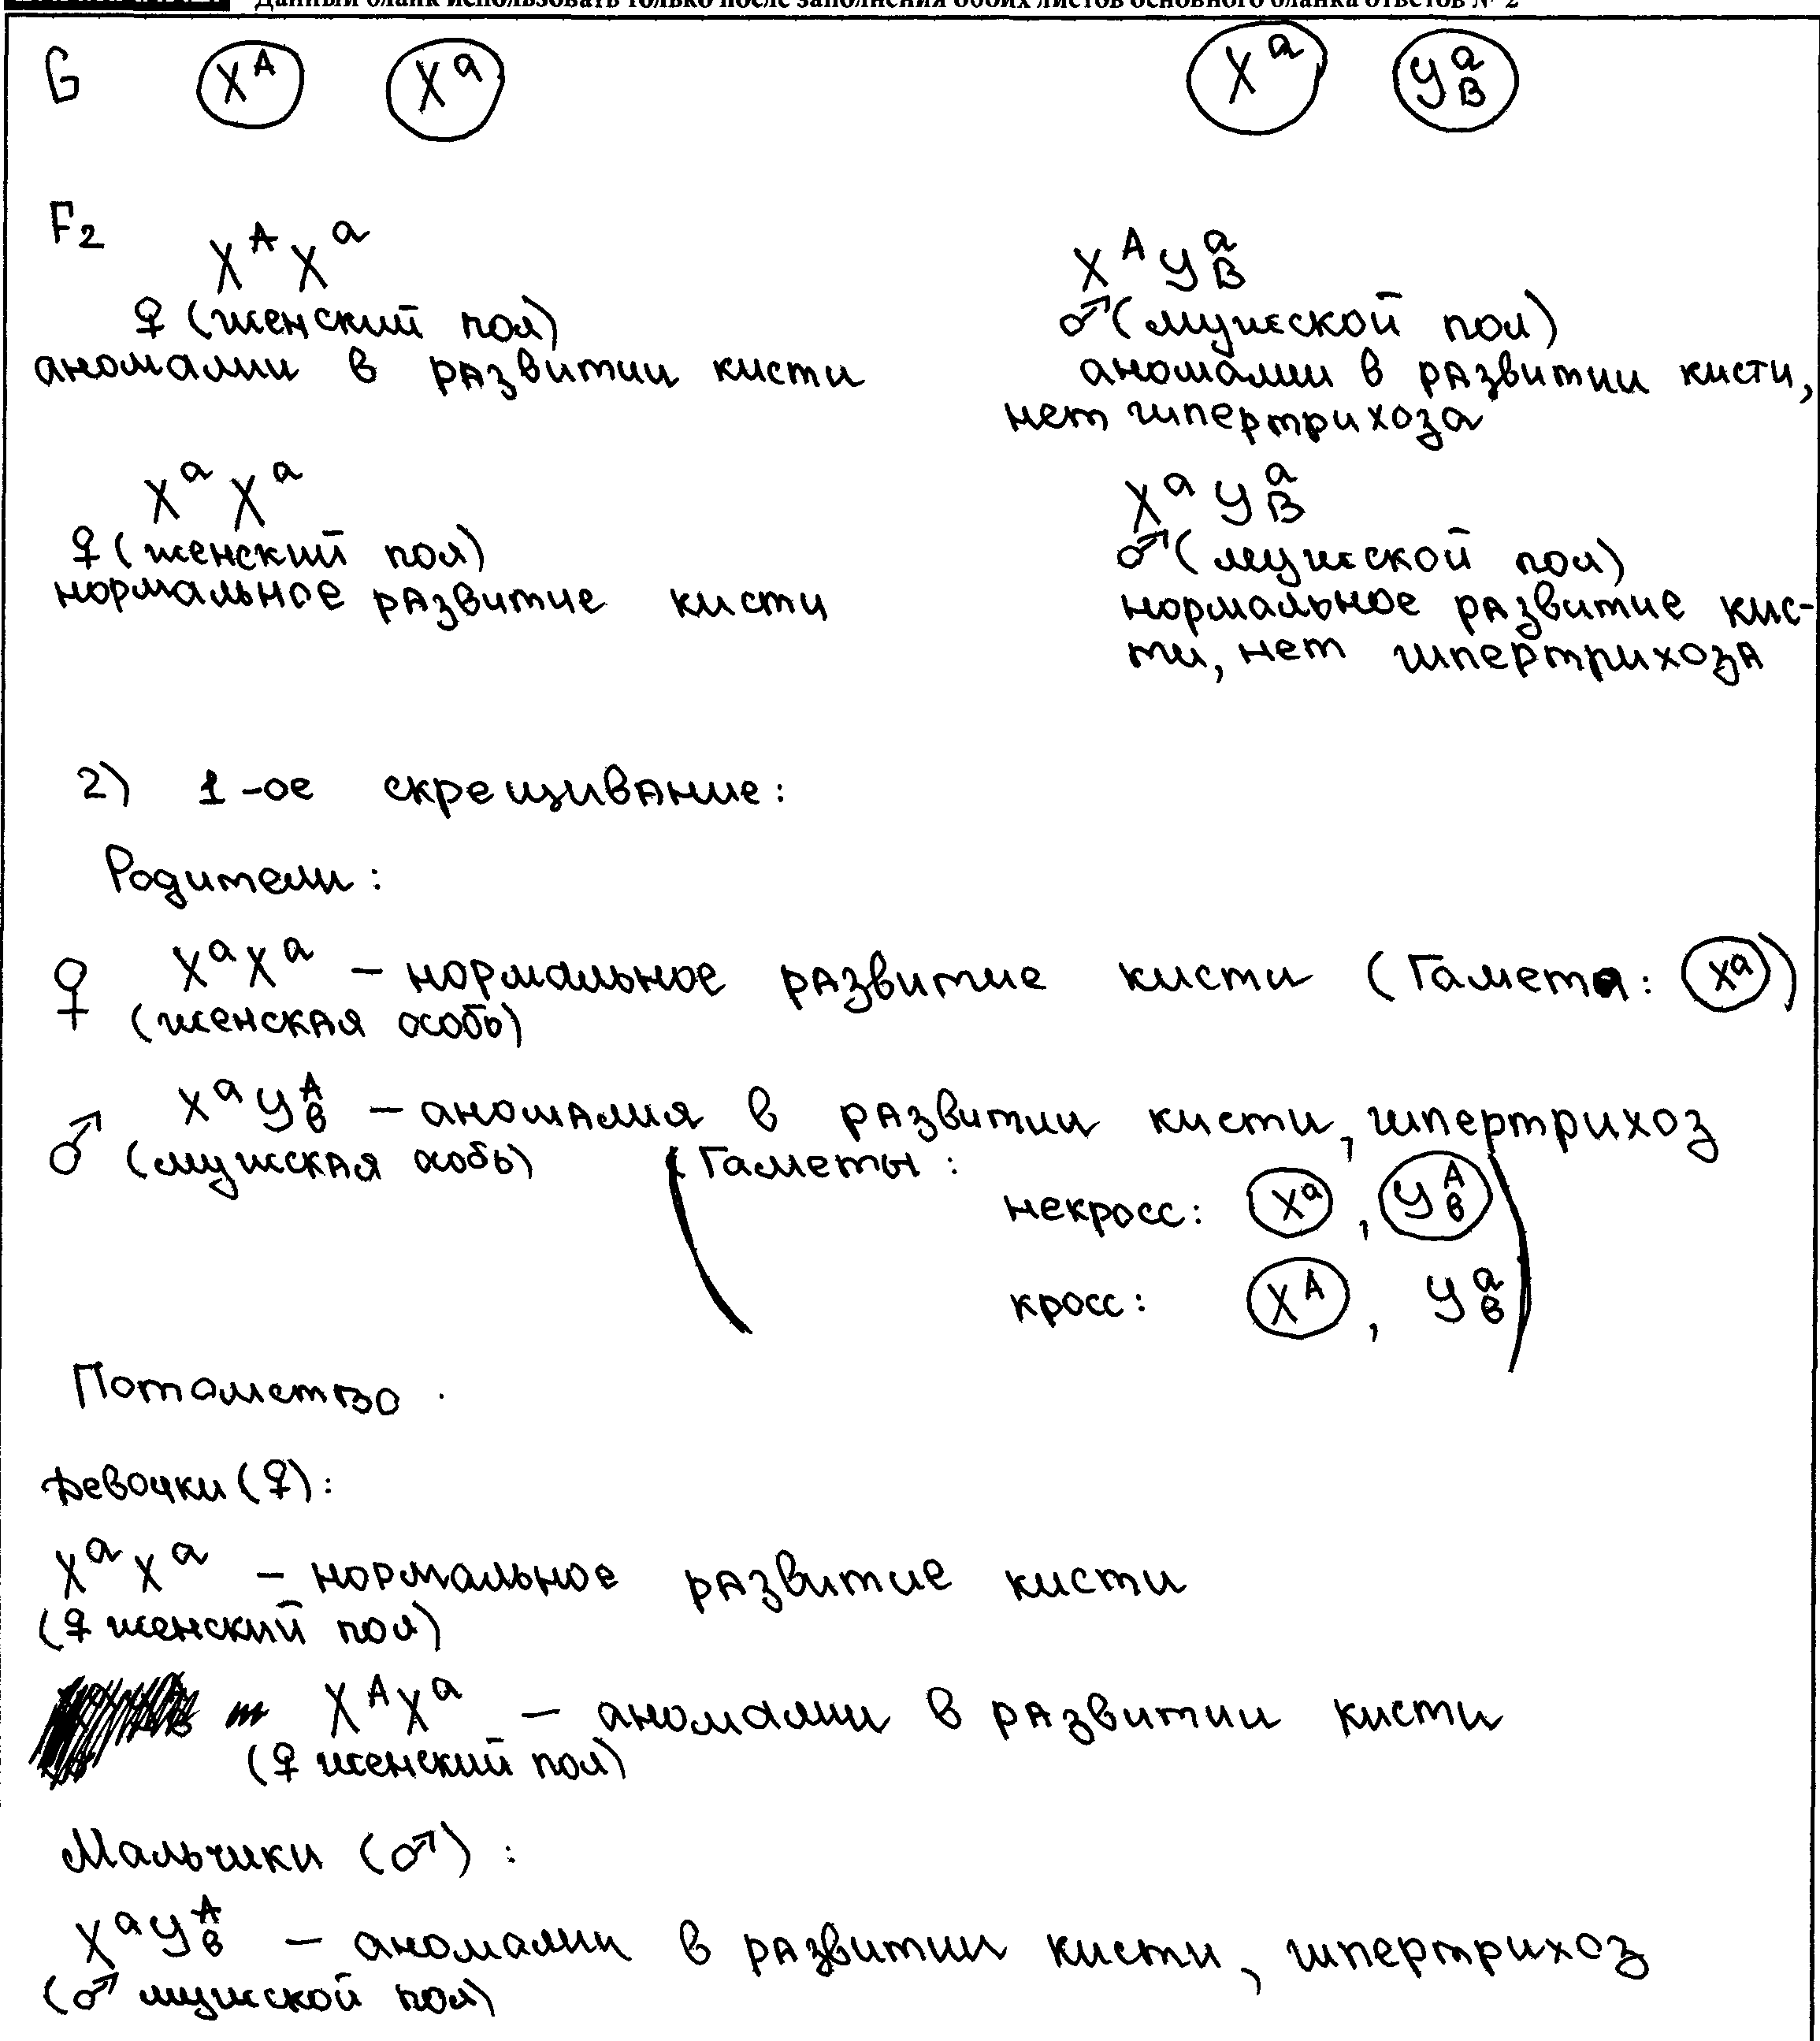 Данный бланк использовать только после заполнения обоих листов основного бланка ответов № 2
G X^A X^a X^a У^a_B
F2
X^A X^a X^A У^a_B
♀ (женский пол) ♂ (мужской пол)
аномалии в развитии кисти аномалии в развитии кисти,
нет гипертрихоза
X^a X^a X^a У^a_B
♀ (женский пол) ♂ (мужской пол)
нормальное развитие кисти нормальное развитие кис-
ти, нет гипертрихоза
2) 1-ое скрещивание:
Родители:
♀ X^a X^a – нормальное развитие кисти (Гамета: X^a)
(женская особь)
♂ X^a У^A_в – аномалия в развитии кисти, гипертрихоз
(мужская особь) (Гаметы:
некросс: X^a, У^A_в
кросс: X^A, У^a_в)
Потомство.
Девочки (♀):
X^a X^a – нормальное развитие кисти
(♀ женский пол)
X^A X^a – аномалии в развитии кисти
(♀ женский пол)
Мальчики (♂):
X^a У^A_в – аномалии в развитии кисти, гипертрихоз
(♂ мужской пол)